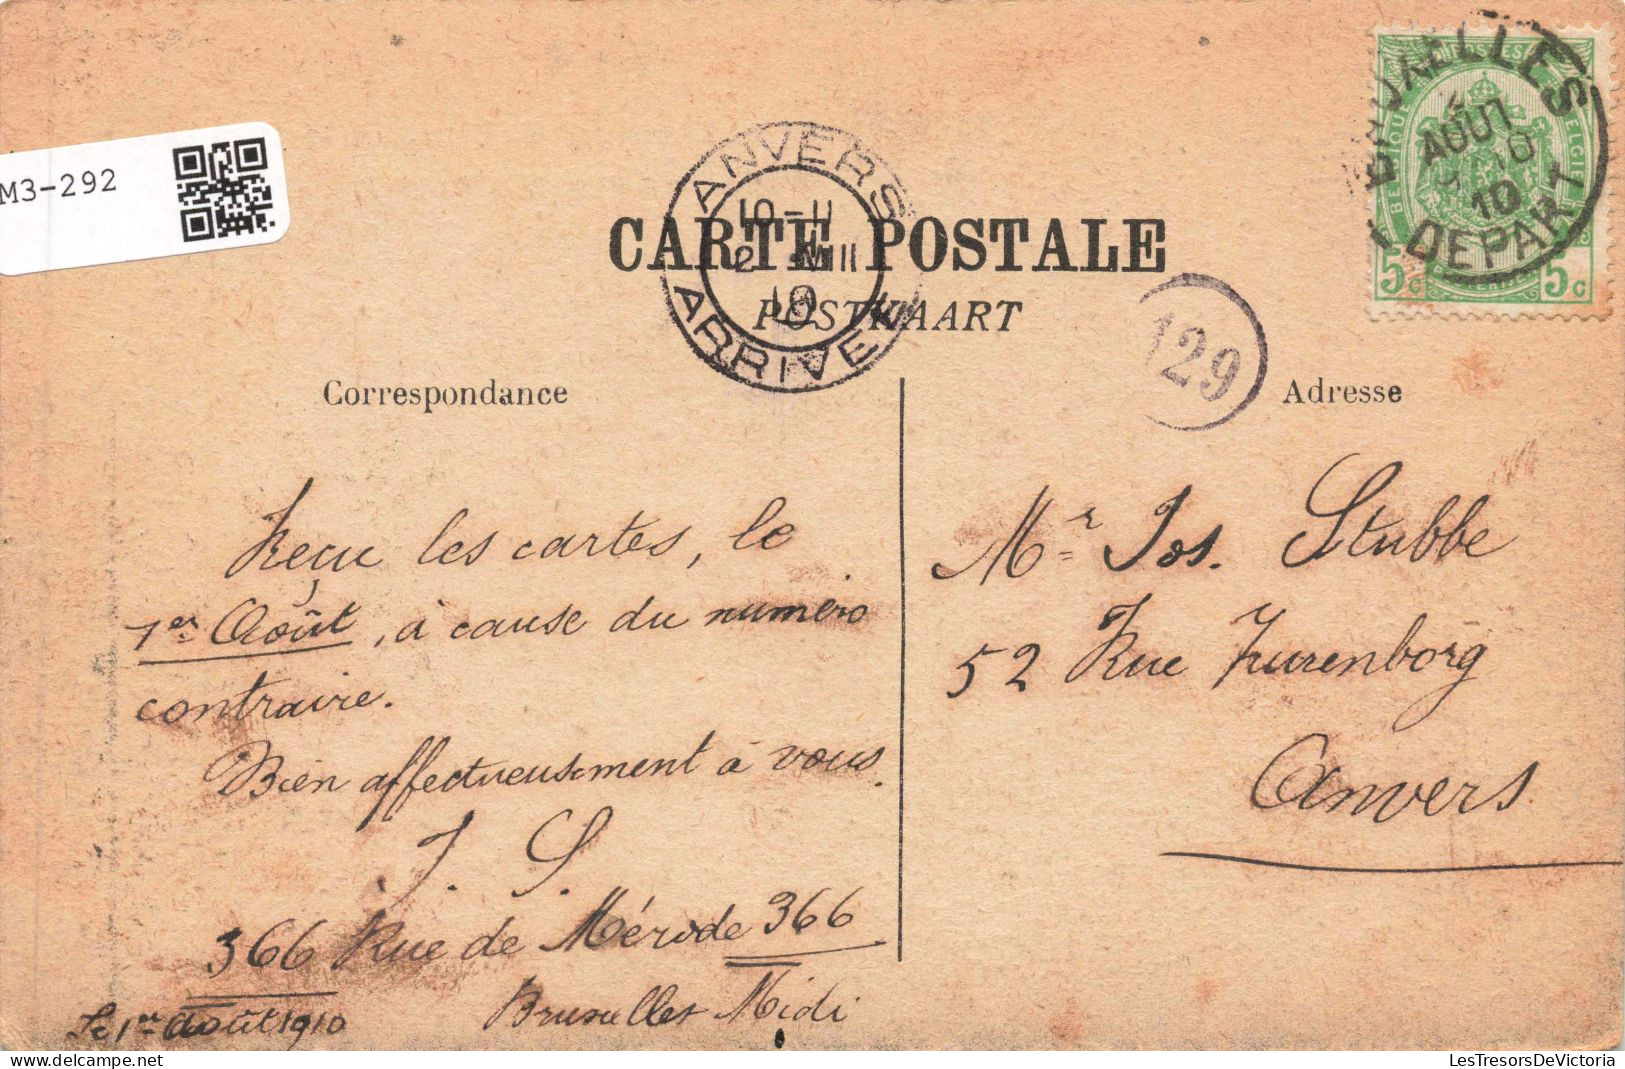 M3-292
BRUXELLES
AOUT
10
10
DEPART 1
POSTES
BELGIQUE
BELGIË
5c 5c
ANVERS
10-11
2 VIII
10
ARRIVEE
CARTE POSTALE
POSTKAART
129
Correspondance
Adresse
Reçu les cartes, le
1er Août, à cause du numéro
contraire.
Bien affectueusement à vous.
J. S.
366 Rue de Mérode 366
Bruxelles Midi
Le 1er Août 1910
Mr Jos. Stubbe
52 Rue Zurenborg
Anvers.
LesTresorsDeVictoria